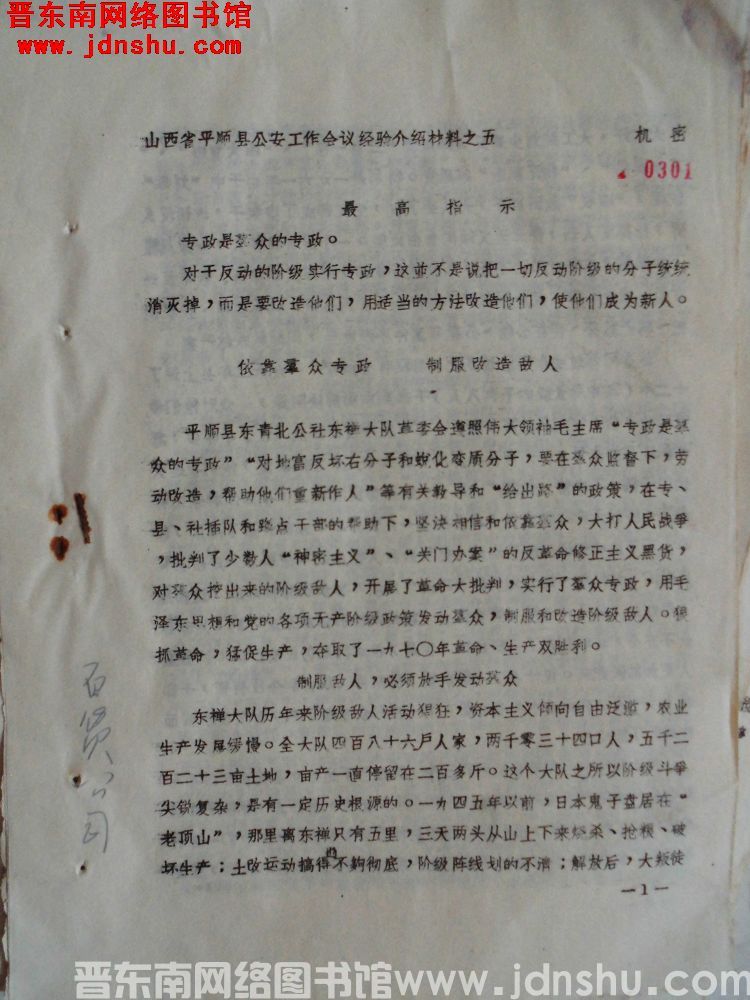 晋东南网络图书馆
www.jdnshu.com
山西省平顺县公安工作会议经验介绍材料之五 机密
0301
最高指示
专政是羣众的专政。
对于反动的阶级实行专政，这並不是说把一切反动阶级的分子统统
消灭掉，而是要改造他们，用适当的方法改造他们，使他们成为新人。
依靠羣众专政 制服改造敌人
平顺县东青北公社东禅大队革委会遵照伟大领袖毛主席“专政是羣
众的专政”“对地富反坏右分子和蜕化变质分子，要在羣众监督下，劳
动改造，帮助他们重新作人”等有关教导和“给出路”的政策，在专、
县、社插队和路点干部的帮助下，坚决相信和依靠羣众，大打人民战爭
，批判了少数人“神密主义”、“关门办案”的反革命修正主义黑货，
对羣众挖出来的阶级敌人，开展了革命大批判，实行了羣众专政，用毛
泽东思想和党的各项无产阶级政策发动羣众，制服和改造阶级敌人。狠
抓革命，猛促生产，夺取了一九七〇年革命、生产双胜利。
制服敌人，必须放手发动羣众
东禅大队历年来阶级敌人活动猖狂，资本主义倾向自由泛滥，农业
生产发展缓慢。全大队四百八十六户人家，两千零三十四口人，五千二
百二十三亩土地，亩产一直停留在二百多斤。这个大队之所以阶级斗爭
尖锐复杂，是有一定历史根源的。一九四五年以前，日本鬼子盘居在“
老顶山”，那里离东禅只有五里，三天两头从山上下来烧杀、抢粮、破
坏生产；土改运动搞得不夠彻底，阶级阵线划的不清；解放后，大叛徒
—1—
百货公司
晋东南网络图书馆www.jdnshu.com